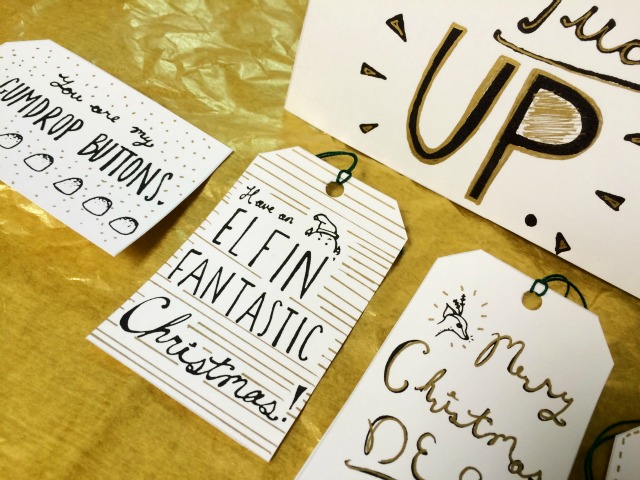 You are my
GUMDROP BUTTONS.
Have an
ELFIN
FANTASTIC
Christmas!
UP
Merry
Christmas